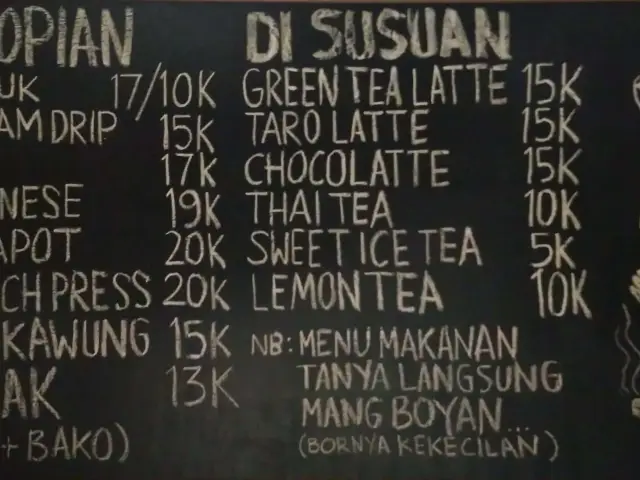 OPIAN
UK 17/10K
AM DRIP 15K
17K
NESE 19K
APOT 20K
CH PRESS 20K
KAWUNG 15K
AK 13K
+ BAKO)
DI SUSUAN
GREEN TEA LATTE 15K
TARO LATTE 15K
CHOCOLATTE 15K
THAI TEA 10K
SWEET ICE TEA 5K
LEMON TEA 10K
NB: MENU MAKANAN
TANYA LANGSUNG
MANG BOYAN...
(BORNYA KEKECILAN)